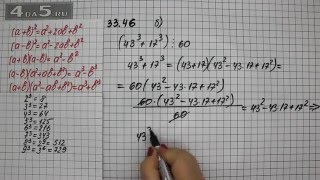 4DA5.RU
(a+b)²=a²+2ab+b²
(a-b)²=a²-2ab+b²
(a+b)(a-b)=a²-b²
(a-b)(a²+ab+b²)=a³-b³
(a+b)(a²-ab+b²)=a³+b³
2³=8
3³=27
4³=64
5³=125
6³=216
7³=343
8³=512
9³=729
33.46 б)
(43³+17³):60
43³+17³=(43+17)(43²-43·17+17²)=
=60(43²-43·17+17²)
60·(43²-43·17+17²)
60
=43²-43·17+17² ⇒
43